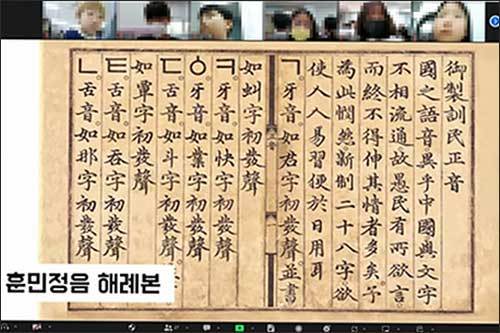 御製訓民正音
國之語音異乎中國與文字
不相流通故愚民有所欲言
而終不得伸其情者多矣予
為此憫然新制二十八字欲
使人人易習便於日用耳
ㄱ牙音如君字初發聲並書
正音
一
如虯字初發聲
ㅋ牙音如快字初發聲
ㆁ牙音如業字初發聲
ㄷ舌音如斗字初發聲
如覃字初發聲
ㅌ舌音如呑字初發聲
ㄴ舌音如那字初發聲
훈민정음 해례본